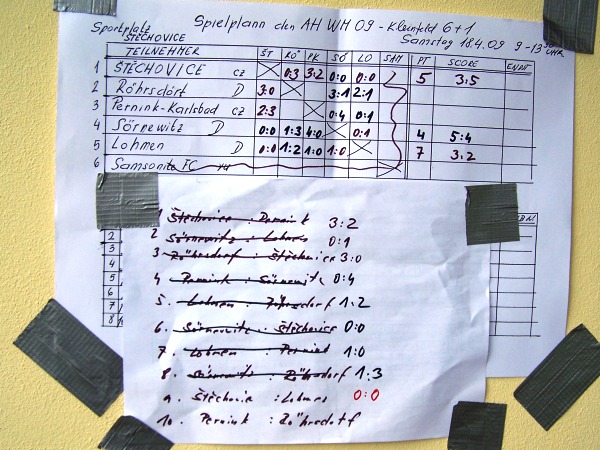 Sportplatz Spielplann den AH WM 09 - Kleinfeld 6+1
ŠTĚCHOVICE Samstag 18.4.09 9-13 30 UHR
TEILNEHMER ŠT RÖ PK SÖ LO SAM PT SCORE
1 ŠTĚCHOVICE CZ 0:3 3:2 0:0 0:0 5 3:5
2 Röhrsdorf D 3:0 3:1 2:1
3 Pernink-Karlsbad CZ 2:3 0:4 0:1
4 Sörnewitz D 0:0 1:3 4:0 0:1 4 5:4
5 Lohmen D 0:0 1:2 1:0 1:0 7 3:2
6 Samsonite FC
1 Štěchovice : Pernink 3:2
2 Sörnewitz : Lohmen 0:1
3 Röhrsdorf : Štěchovice 3:0
4 Pernink : Sörnewitz 0:4
5. Lohmen : Röhrsdorf 1:2
6. Sörnewitz : Štěchovice 0:0
7. Lohmen : Pernink 1:0
8. Sörnewitz : Röhrsdorf 1:3
9. Štěchovice : Lohmen 0:0
10. Pernink : Röhrsdorf
2
3
4
5
6
7
8